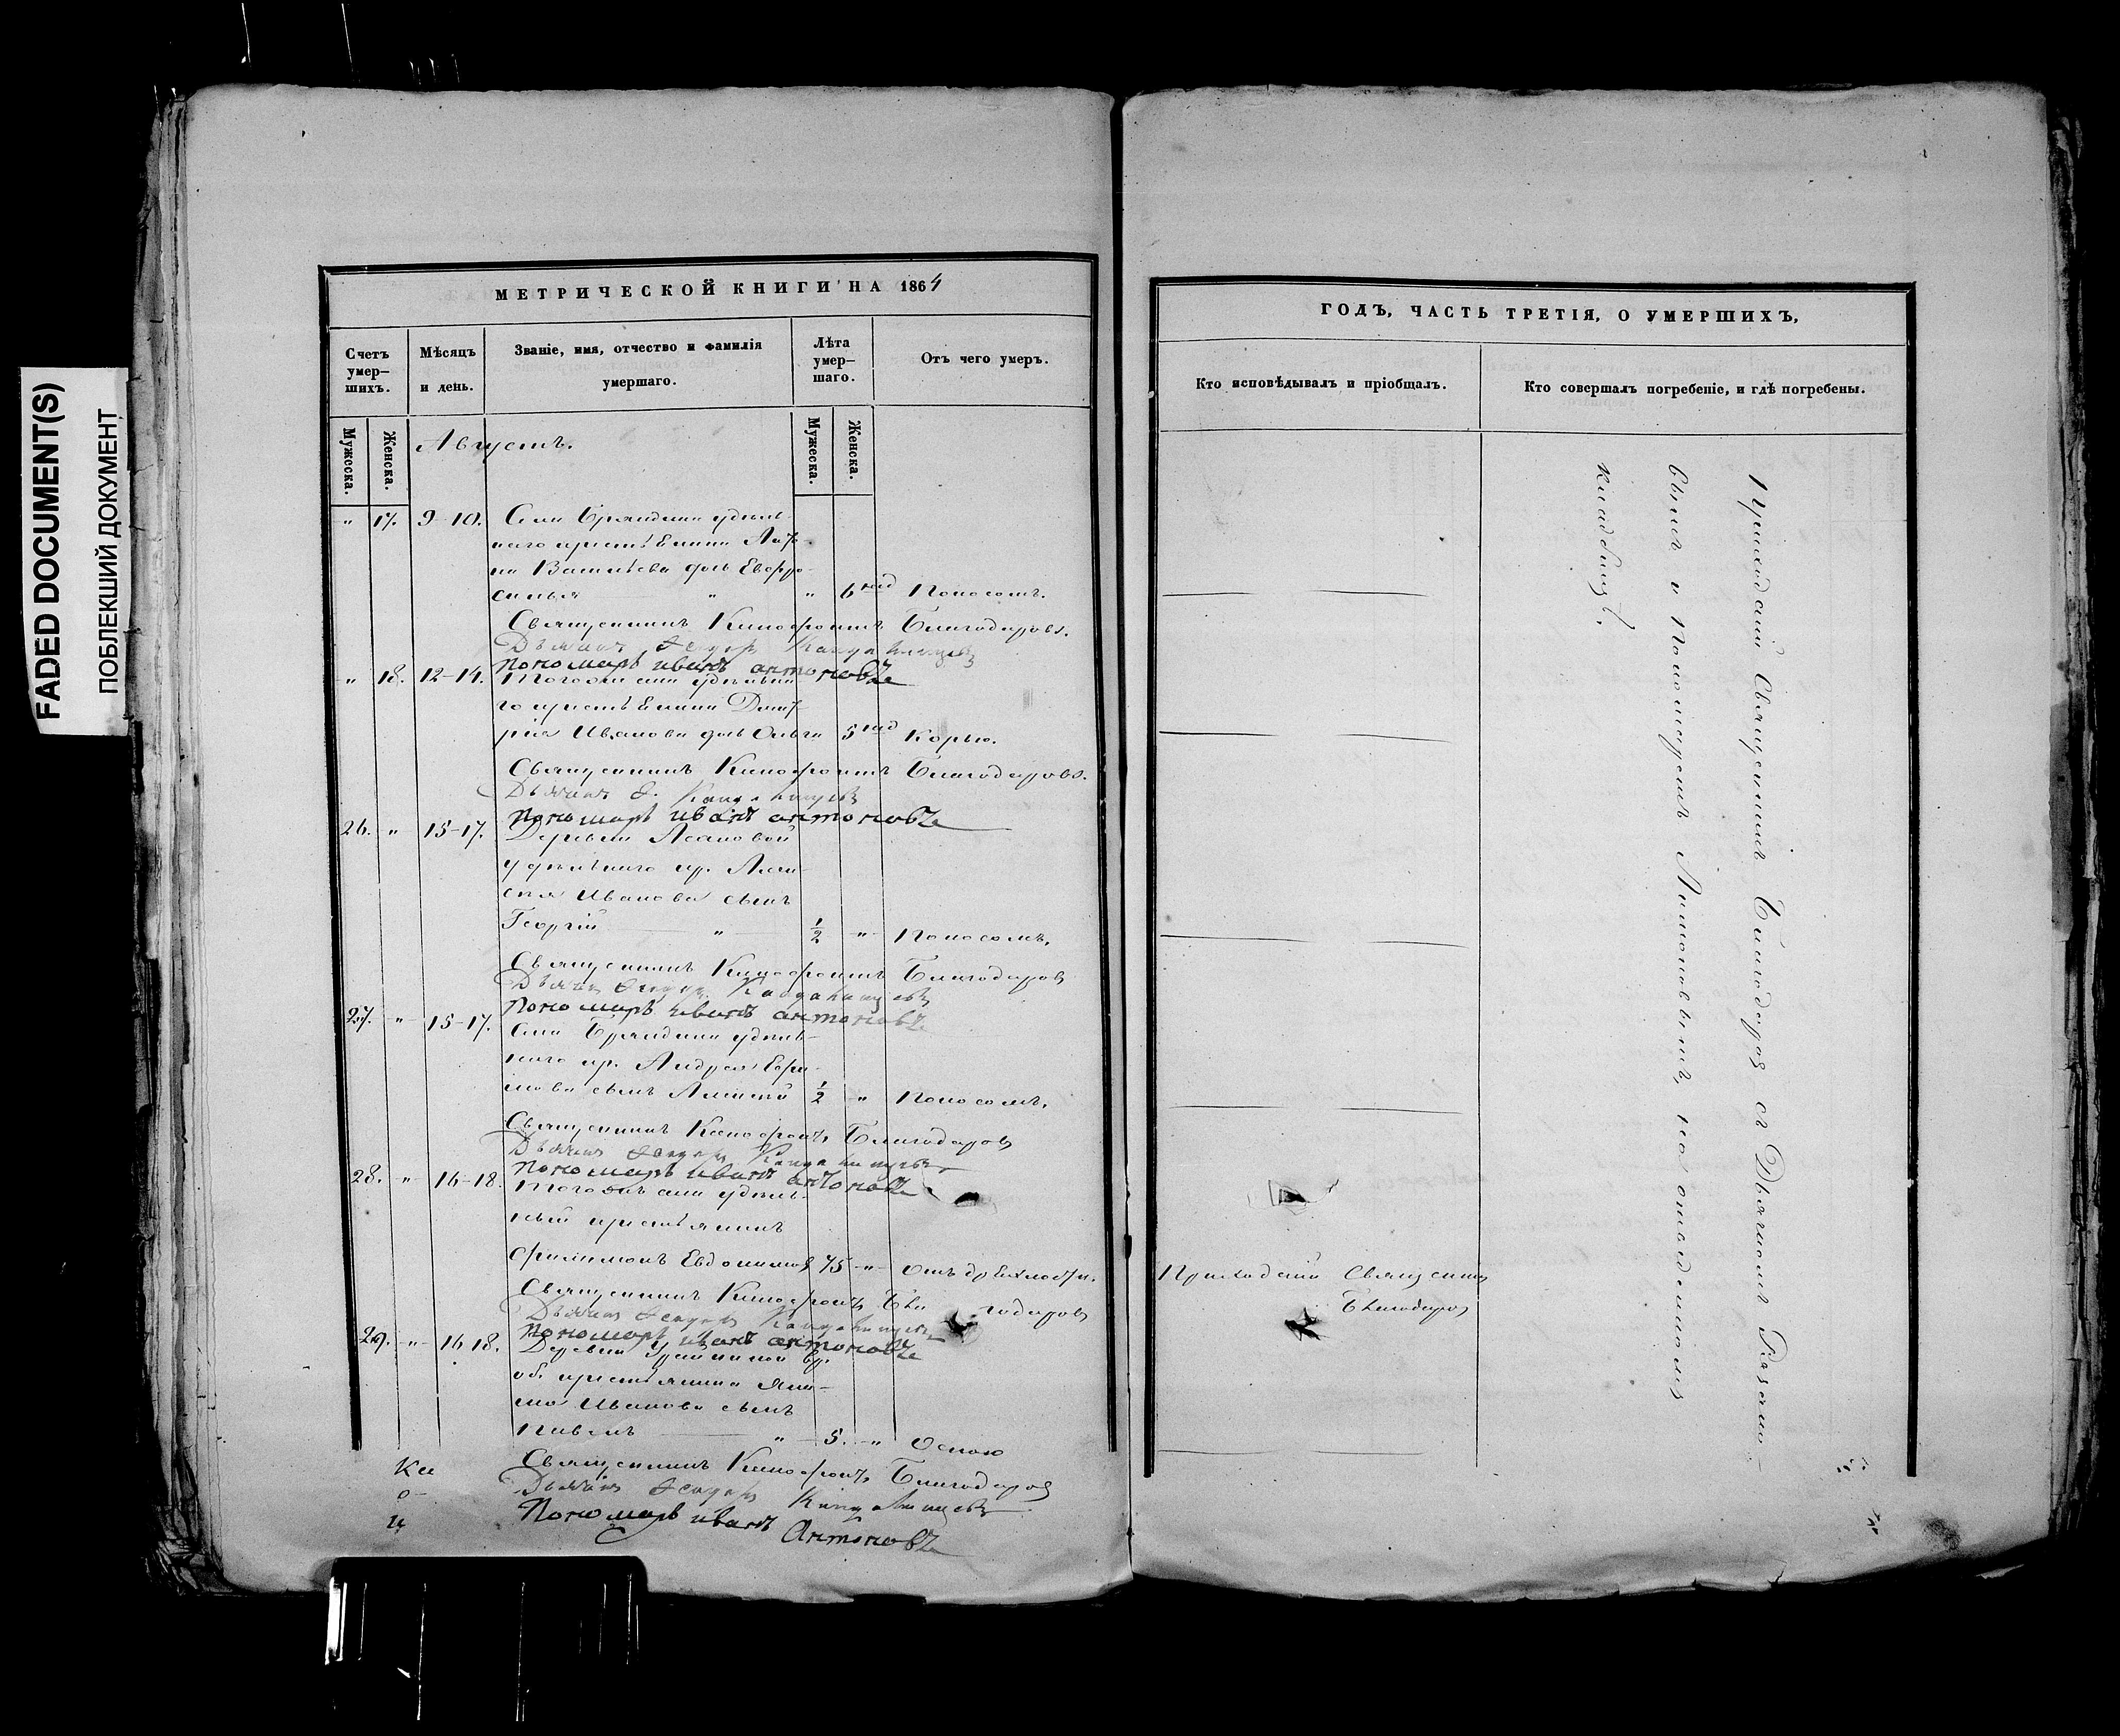 FADED DOCUMENT(S)
ПОБЛЕКШИЙ ДОКУМЕНТ
МЕТРИЧЕСКОЙ КНИГИ НА 1864
Счетъ умер-
шихъ.
Мѣсяцъ
и день.
Званіе, имя, отчество и фамилія
умершаго.
Лѣта
умер-
шаго.
Отъ чего умеръ.
Мужеска.
Женска.
Мужеска.
Женска.
Августъ.
" 17. 9-10. Села удѣль-
наго
на Васильева дочь Евфро-
синья " " 6 нед Поносомъ.
Священникъ Ксенофонтъ Благодаровъ.
Дьячекъ Ѳедоръ
Пономарь Иванъ Антоновъ
" 18. 12-14. Тогоже села удѣльна
го крестьянина Дмит-
рія Иванова дочь Ольга 5 нед Корью.
Священникъ Ксенофонтъ Благодаровъ.
Дьячекъ Ѳ.
Пономарь Иванъ Антоновъ
26. " 15-17. Деревни Асановой
удѣльнаго кр. Алек-
сѣя Иванова сынъ
Георгій " 1/2 " Поносомъ.
Священникъ Ксенофонтъ Благодаровъ
Дьячекъ Ѳедоръ
Пономарь Иванъ Антоновъ
27. " 15-17. Села удѣль-
наго кр. Андрея Ефи-
мова сынъ Алексѣй 1/2 " Поносомъ.
Священникъ Ксенофонтъ Благодаровъ
Дьячекъ Ѳедоръ
Пономарь Иванъ Антоновъ
28. " 16-18. Тогоже села удѣль-
ный крестьянинъ
Филимонъ Евдокимовъ 75 " Отъ дряхлости.
Священникъ Ксенофонтъ Благодаровъ
Дьячекъ Ѳедоръ
Пономарь Иванъ Антоновъ
29. " 16-18. Деревни вр.
об. крестьянина
Иванова сынъ
Павелъ " 5. " Оспою
Священникъ Ксенофонтъ Благодаровъ
Дьячекъ Ѳедоръ
Пономарь Иванъ Антоновъ
ГОДЪ, ЧАСТЬ ТРЕТІЯ, О УМЕРШИХЪ,
Кто исповѣдывалъ и пріобщалъ.
Кто совершалъ погребеніе, и гдѣ погребены.
Приходскій Священникъ
Благодаровъ
Приходскій Священникъ Благодаровъ съ Дьячкомъ
и Пономаремъ Антоновымъ, на отведенномъ
кладбищѣ.